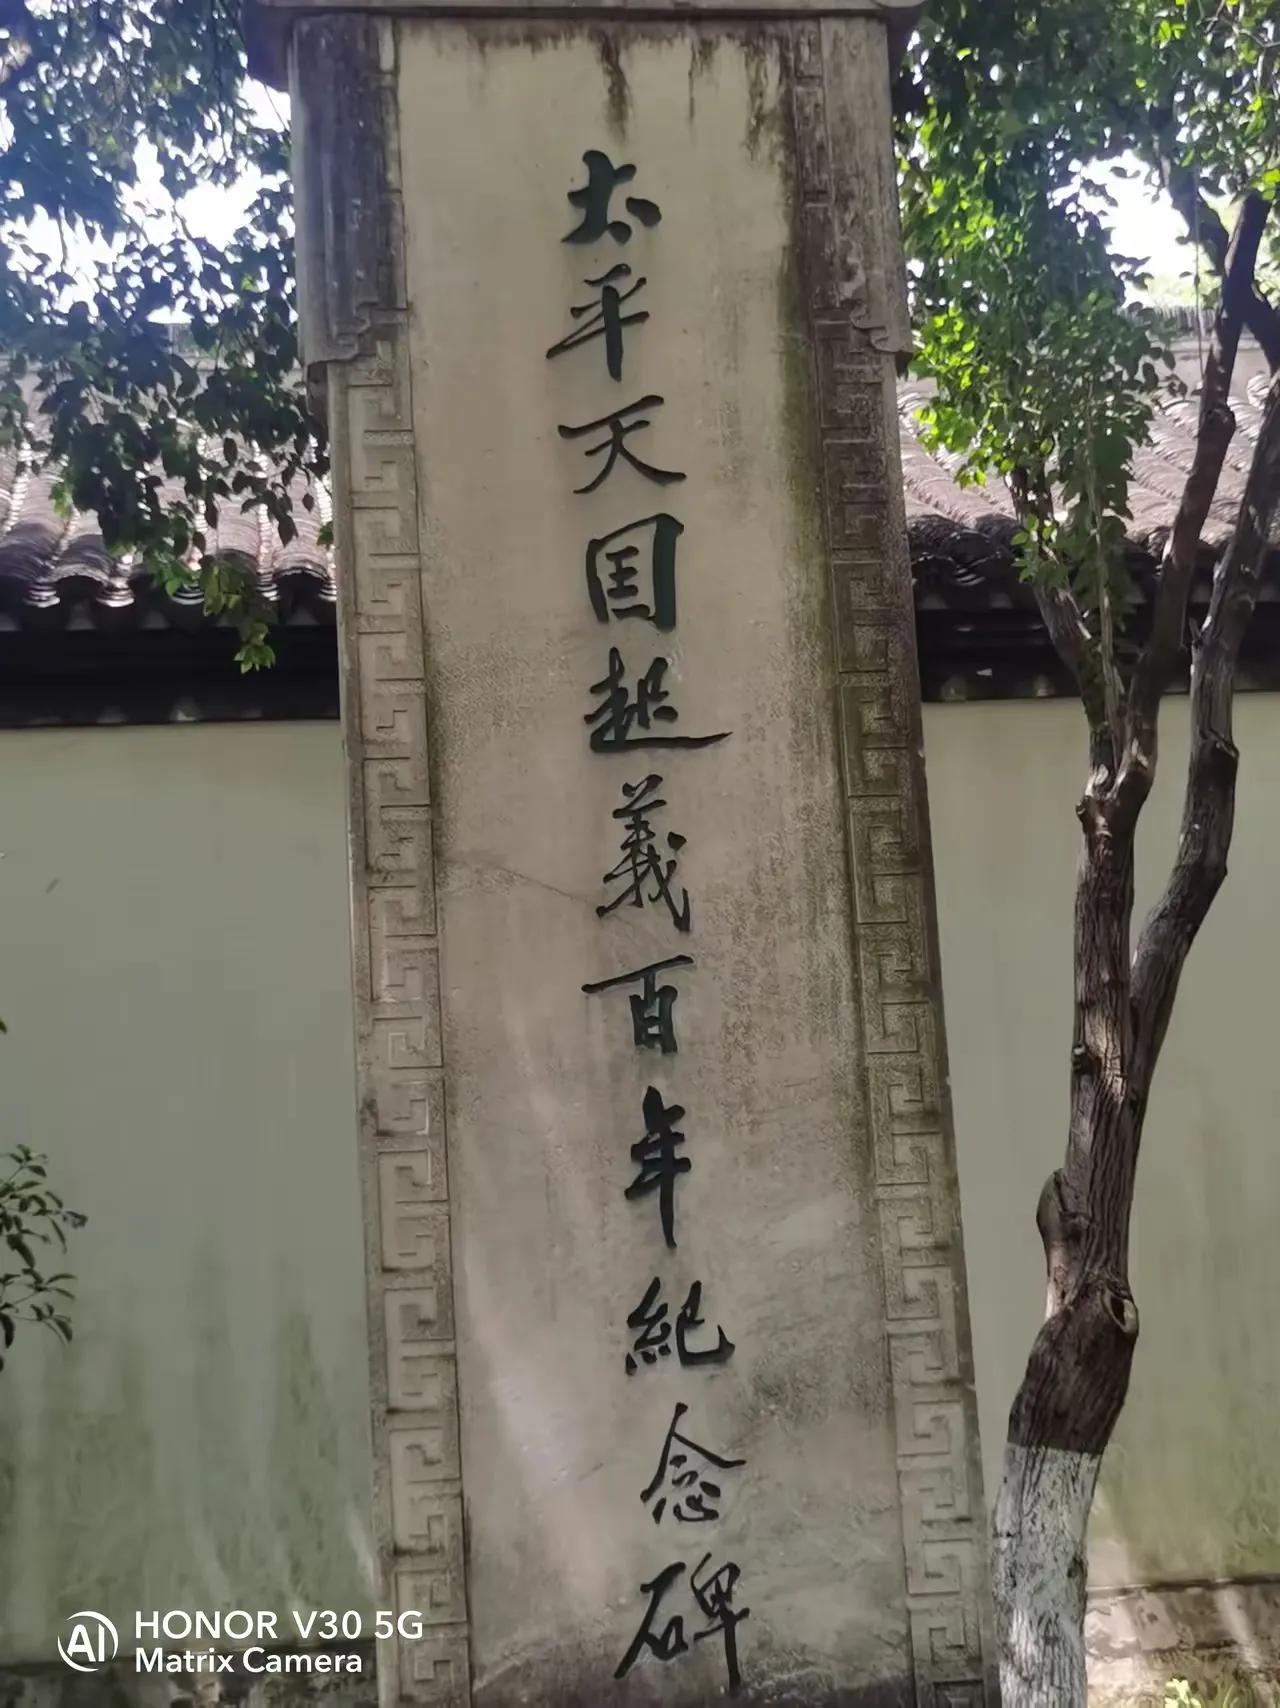 太平天囯起義百年紀念碑
HONOR V30 5G
Matrix Camera
AI